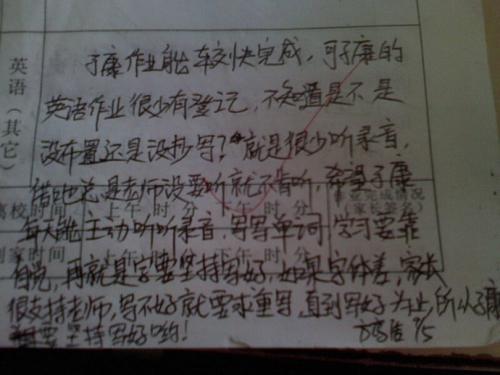 子康作业能较快完成，可子康的
英语（其它）
英语作业很少有登记，不知道是不是
没布置还是没抄写？就是很少听录音，
总是老师没要听就不肯听，希望子康
离校时间 上午 时 分 下午 时 分
作业完成情况（家长签分）
每天能主动听听录音 写写单词 学习要靠
到家时间
自觉，再就是字要坚持写好，如果字体差，家长
很支持老师，写不好就要求重写，直到写好为止，所以子康
要坚持写好哟！